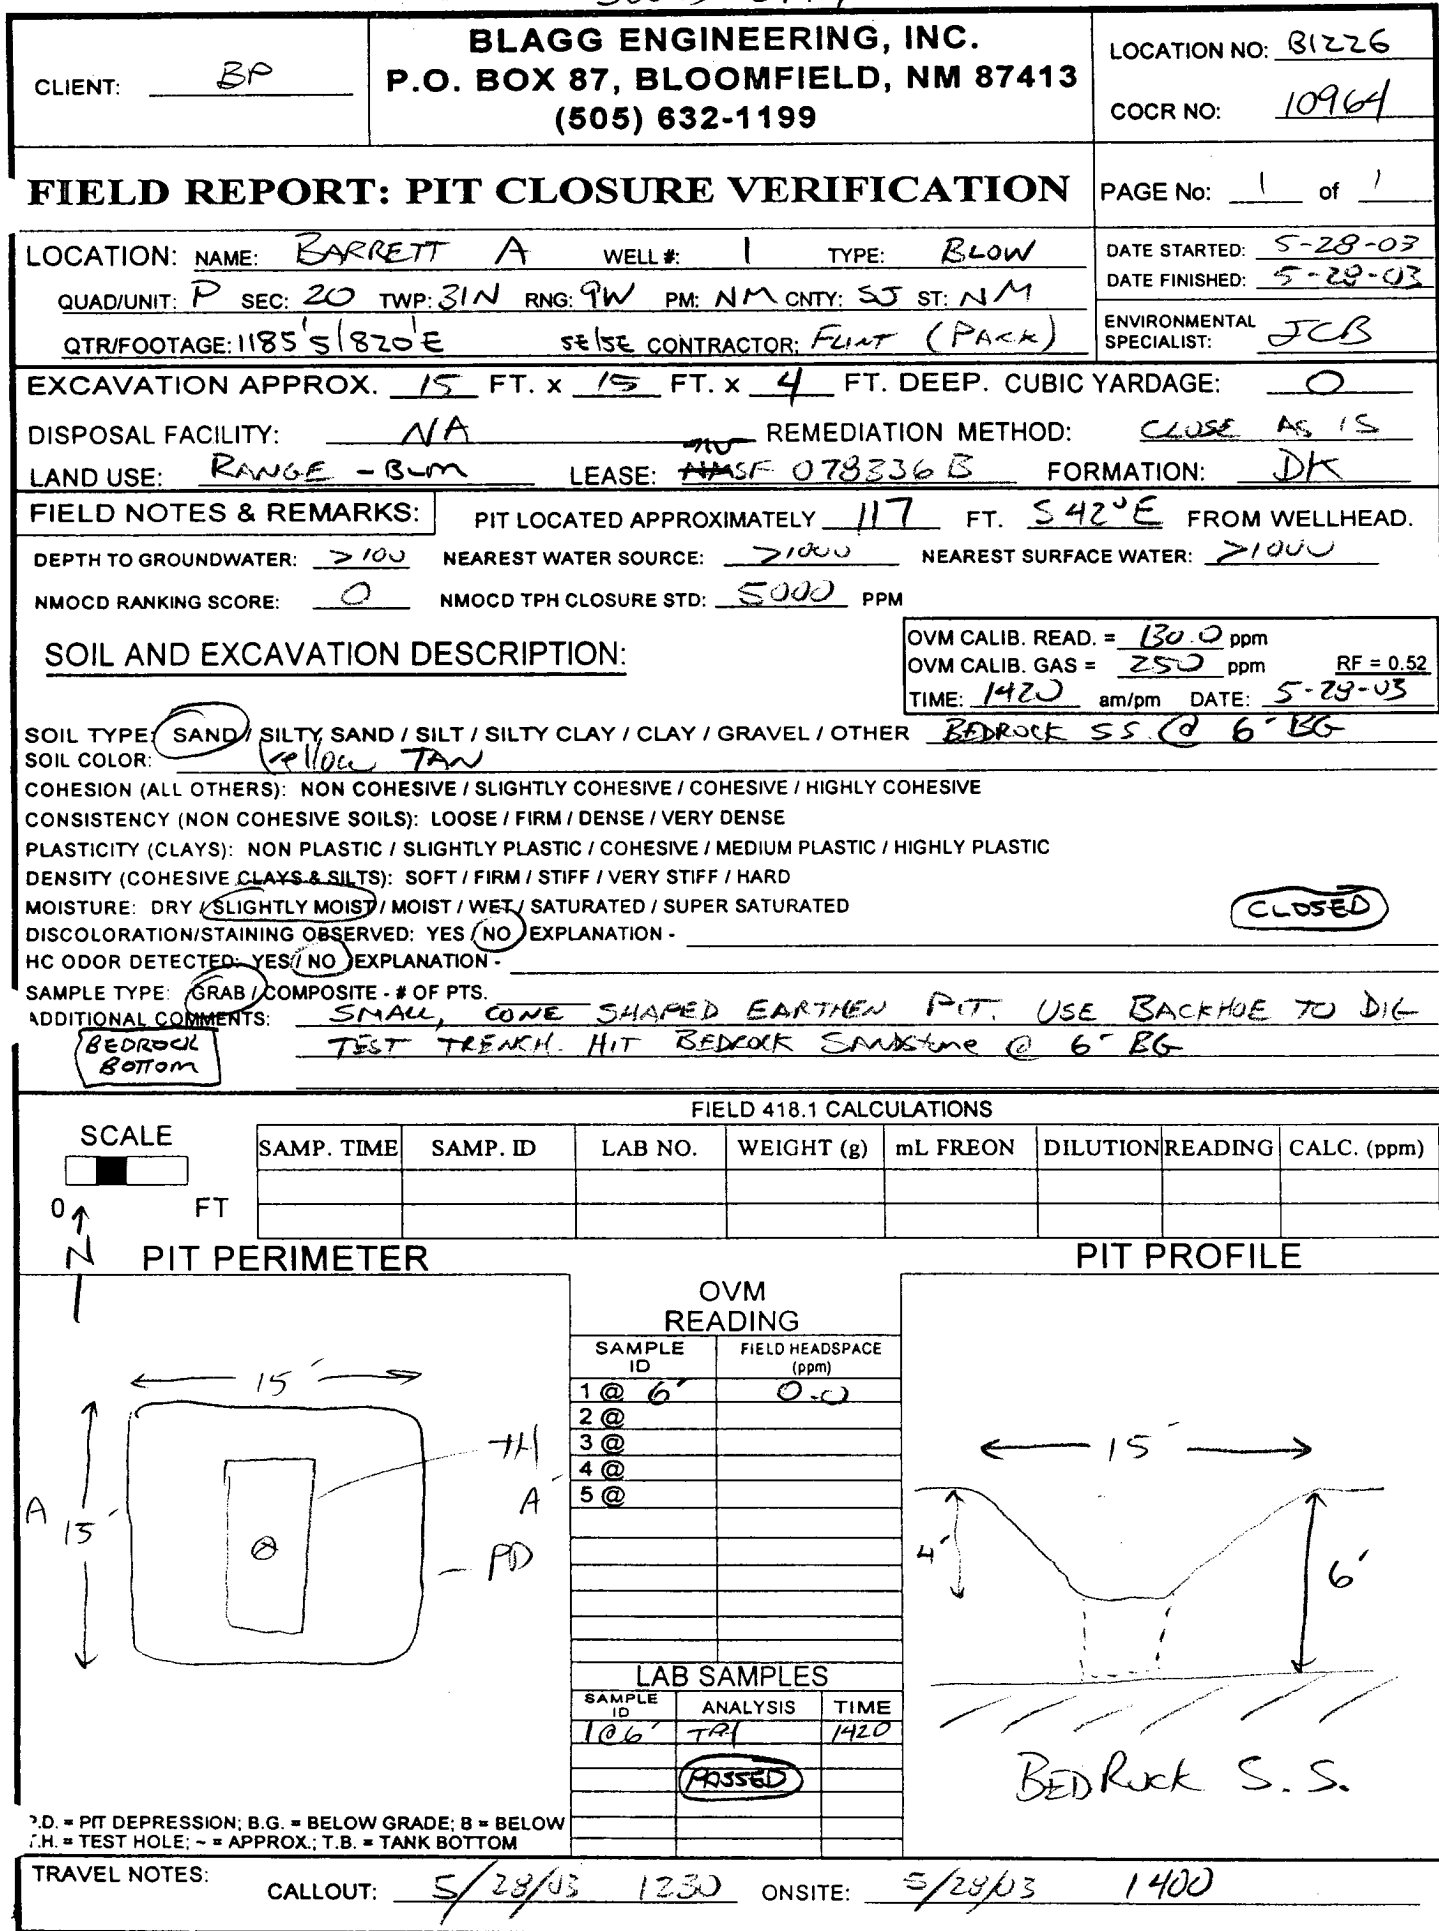 BLAGG ENGINEERING, INC.
P.O. BOX 87, BLOOMFIELD, NM 87413
(505) 632-1199
CLIENT: BP
LOCATION NO: B1226
COCR NO: 10964
FIELD REPORT: PIT CLOSURE VERIFICATION
PAGE No: 1 of 1
LOCATION: NAME: BARRETT A WELL #: 1 TYPE: BLOW
QUAD/UNIT: P SEC: 20 TWP: 31N RNG: 9W PM: NM CNTY: SJ ST: NM
QTR/FOOTAGE: 1185'S/820'E SE/SE CONTRACTOR: FLINT (PACK)
DATE STARTED: 5-28-03
DATE FINISHED: 5-28-03
ENVIRONMENTAL SPECIALIST: JCB
EXCAVATION APPROX. 15 FT. x 15 FT. x 4 FT. DEEP. CUBIC YARDAGE: 0
DISPOSAL FACILITY: NA REMEDIATION METHOD: CLOSE AS IS
LAND USE: RANGE - BLM LEASE: SF 078336 B FORMATION: DK
FIELD NOTES & REMARKS: PIT LOCATED APPROXIMATELY 117 FT. S42°E FROM WELLHEAD.
DEPTH TO GROUNDWATER: >100 NEAREST WATER SOURCE: >1000 NEAREST SURFACE WATER: >1000
NMOCD RANKING SCORE: 0 NMOCD TPH CLOSURE STD: 5000 PPM
SOIL AND EXCAVATION DESCRIPTION:
OVM CALIB. READ. = 130.0 ppm
OVM CALIB. GAS = 250 ppm RF = 0.52
TIME: 1420 am/pm DATE: 5-28-03
SOIL TYPE: SAND / SILTY SAND / SILT / SILTY CLAY / CLAY / GRAVEL / OTHER BEDROCK SS @ 6' BG
SOIL COLOR: Yellow TAN
COHESION (ALL OTHERS): NON COHESIVE / SLIGHTLY COHESIVE / COHESIVE / HIGHLY COHESIVE
CONSISTENCY (NON COHESIVE SOILS): LOOSE / FIRM / DENSE / VERY DENSE
PLASTICITY (CLAYS): NON PLASTIC / SLIGHTLY PLASTIC / COHESIVE / MEDIUM PLASTIC / HIGHLY PLASTIC
DENSITY (COHESIVE CLAYS & SILTS): SOFT / FIRM / STIFF / VERY STIFF / HARD
MOISTURE: DRY / SLIGHTLY MOIST / MOIST / WET / SATURATED / SUPER SATURATED
CLOSED
DISCOLORATION/STAINING OBSERVED: YES / NO EXPLANATION -
HC ODOR DETECTED: YES / NO EXPLANATION -
SAMPLE TYPE: GRAB / COMPOSITE - # OF PTS.
ADDITIONAL COMMENTS: SMALL, CONE SHAPED EARTHEN PIT. USE BACKHOE TO DIG
TEST TRENCH. HIT BEDROCK SANDSTONE @ 6' BG
BEDROCK
BOTTOM
FIELD 418.1 CALCULATIONS
SCALE
0 FT
SAMP. TIME SAMP. ID LAB NO. WEIGHT (g) mL FREON DILUTION READING CALC. (ppm)
N
PIT PERIMETER
PIT PROFILE
15'
A 15'
TH
A'
PD
OVM
READING
SAMPLE ID FIELD HEADSPACE (ppm)
1 @ 6' 0.0
2 @
3 @
4 @
5 @
LAB SAMPLES
SAMPLE ID ANALYSIS TIME
1@6' TPH 1420
PASSED
15'
4'
6'
BEDROCK S.S.
P.D. = PIT DEPRESSION; B.G. = BELOW GRADE; B = BELOW
T.H. = TEST HOLE; ~ = APPROX.; T.B. = TANK BOTTOM
TRAVEL NOTES: CALLOUT: 5/28/03 1230 ONSITE: 5/28/03 1400